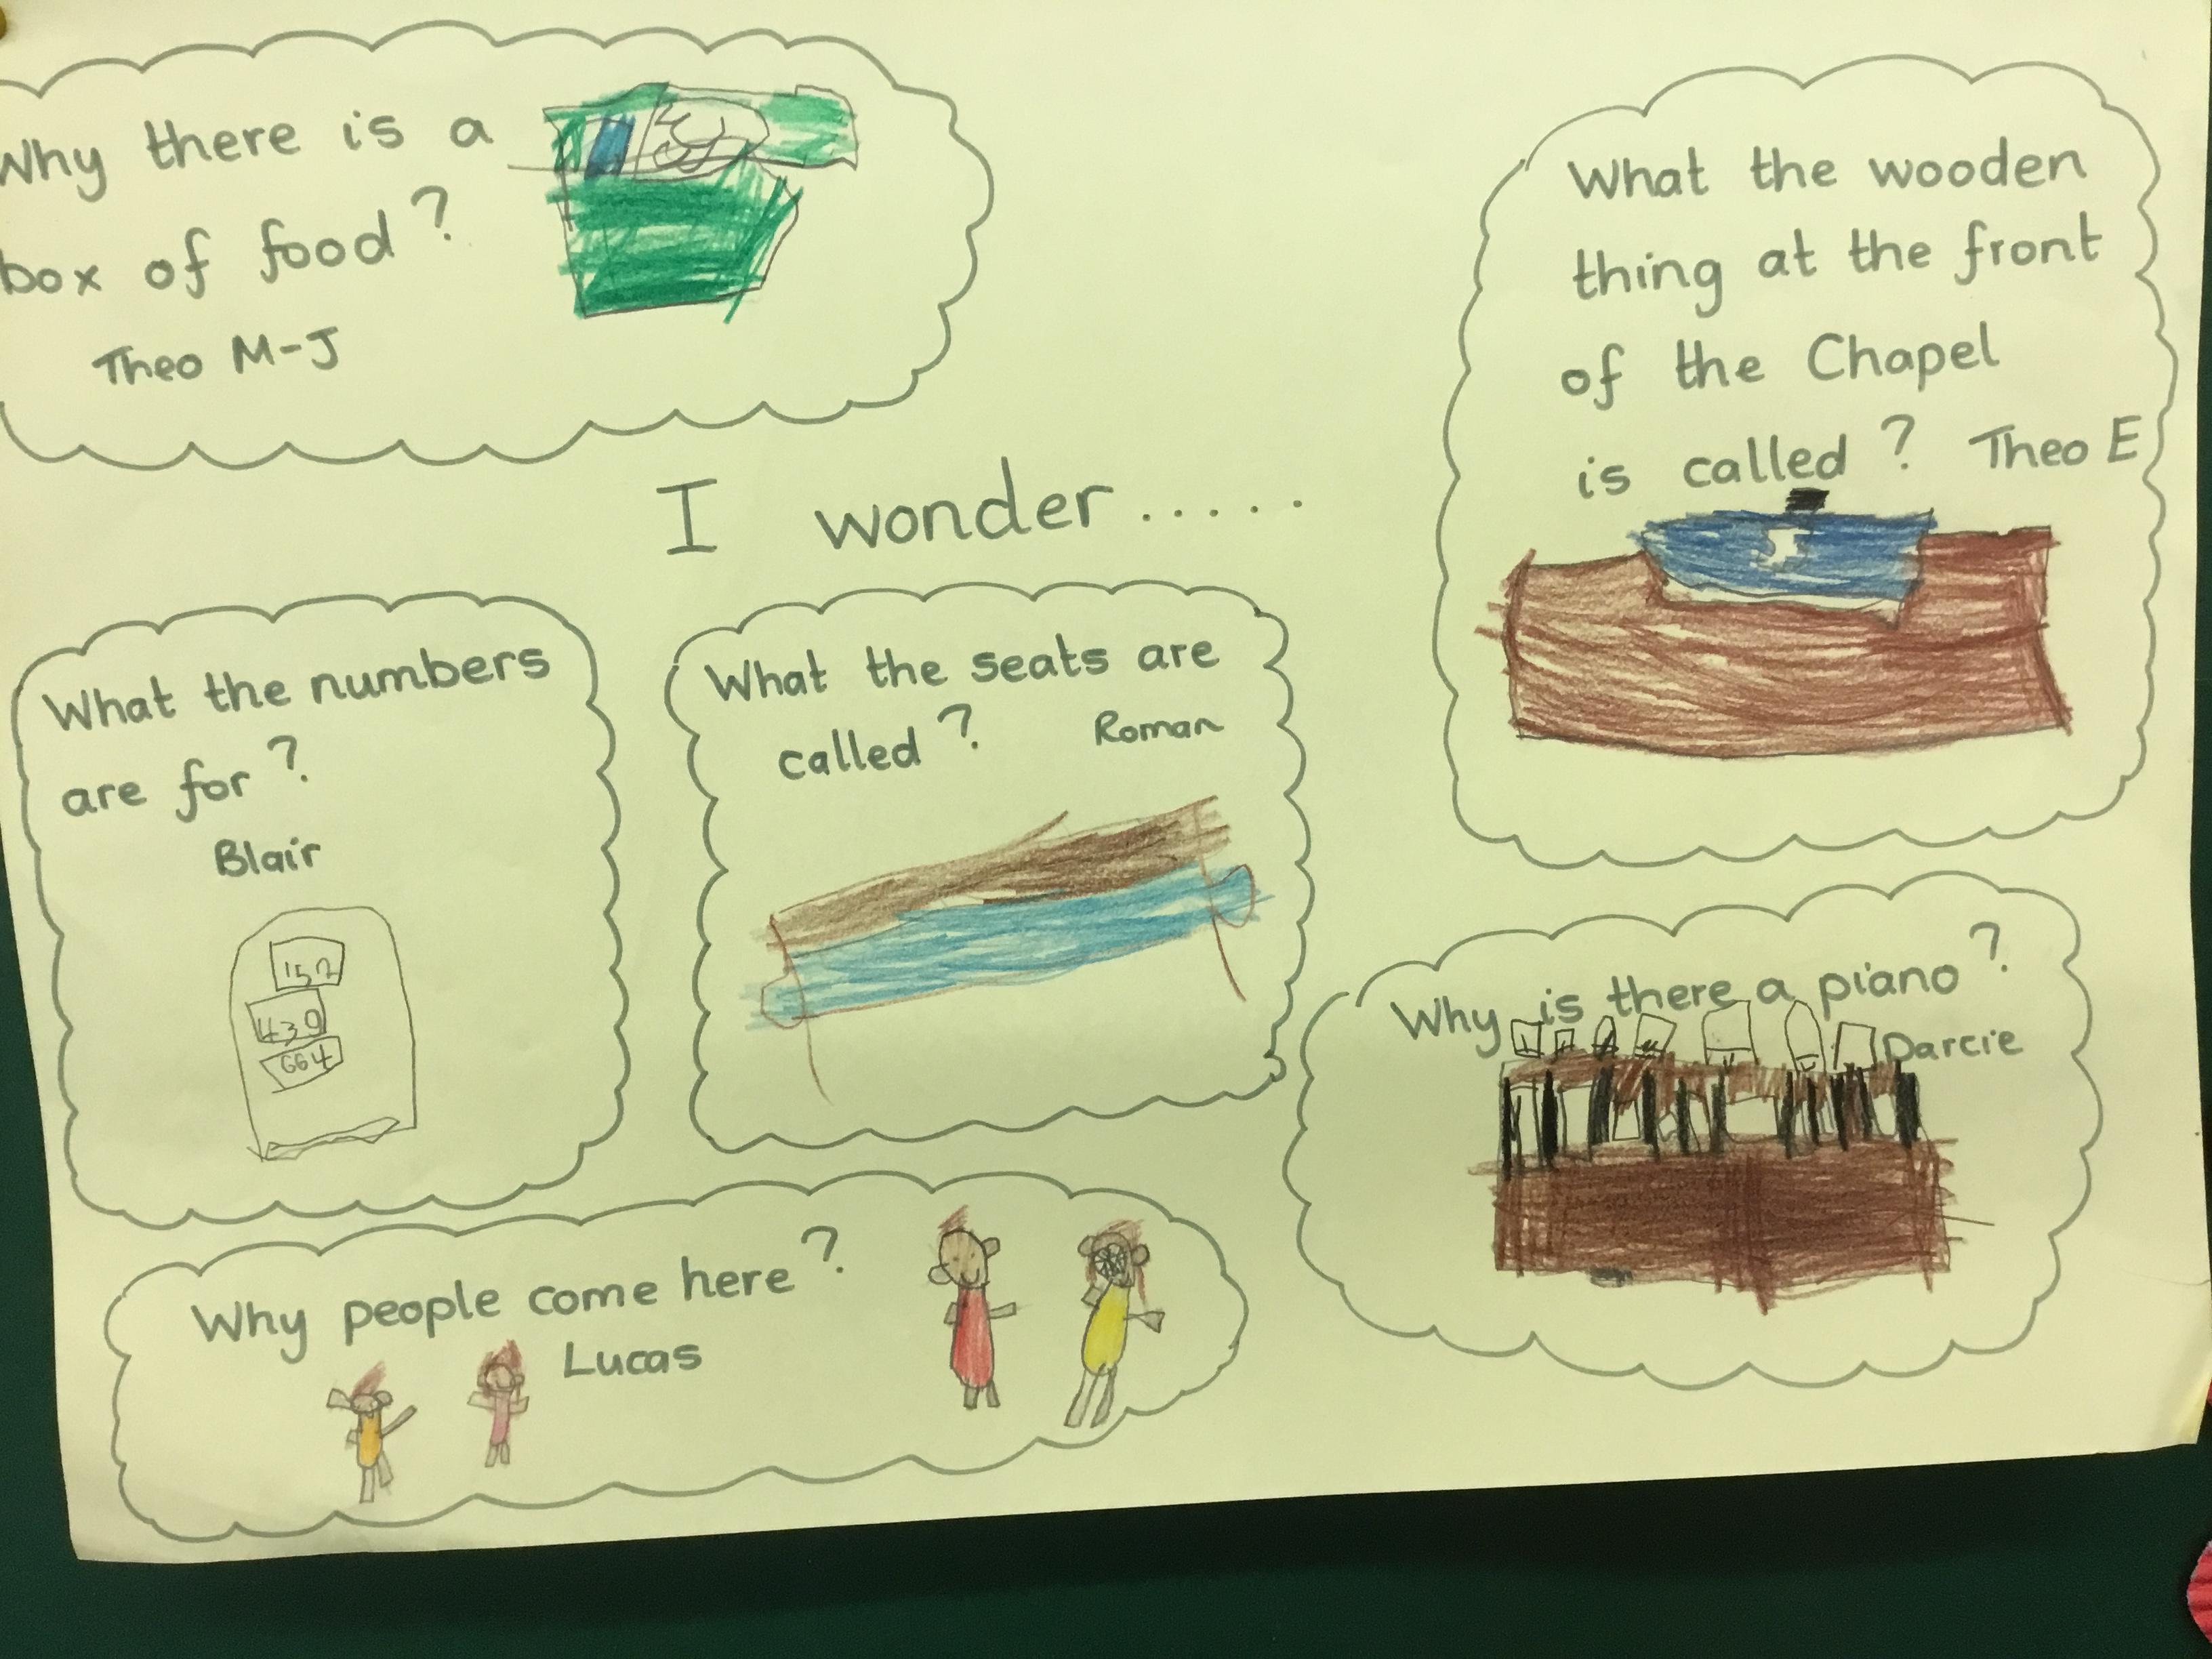 Why there is a
box of food?
Theo M-J
What the wooden
thing at the front
of the Chapel
is called? Theo E
I wonder.....
What the numbers
are for?
Blair
152
439
664
What the seats are
called?
Roman
Why is there a piano?
Darcie
Why people come here?
Lucas